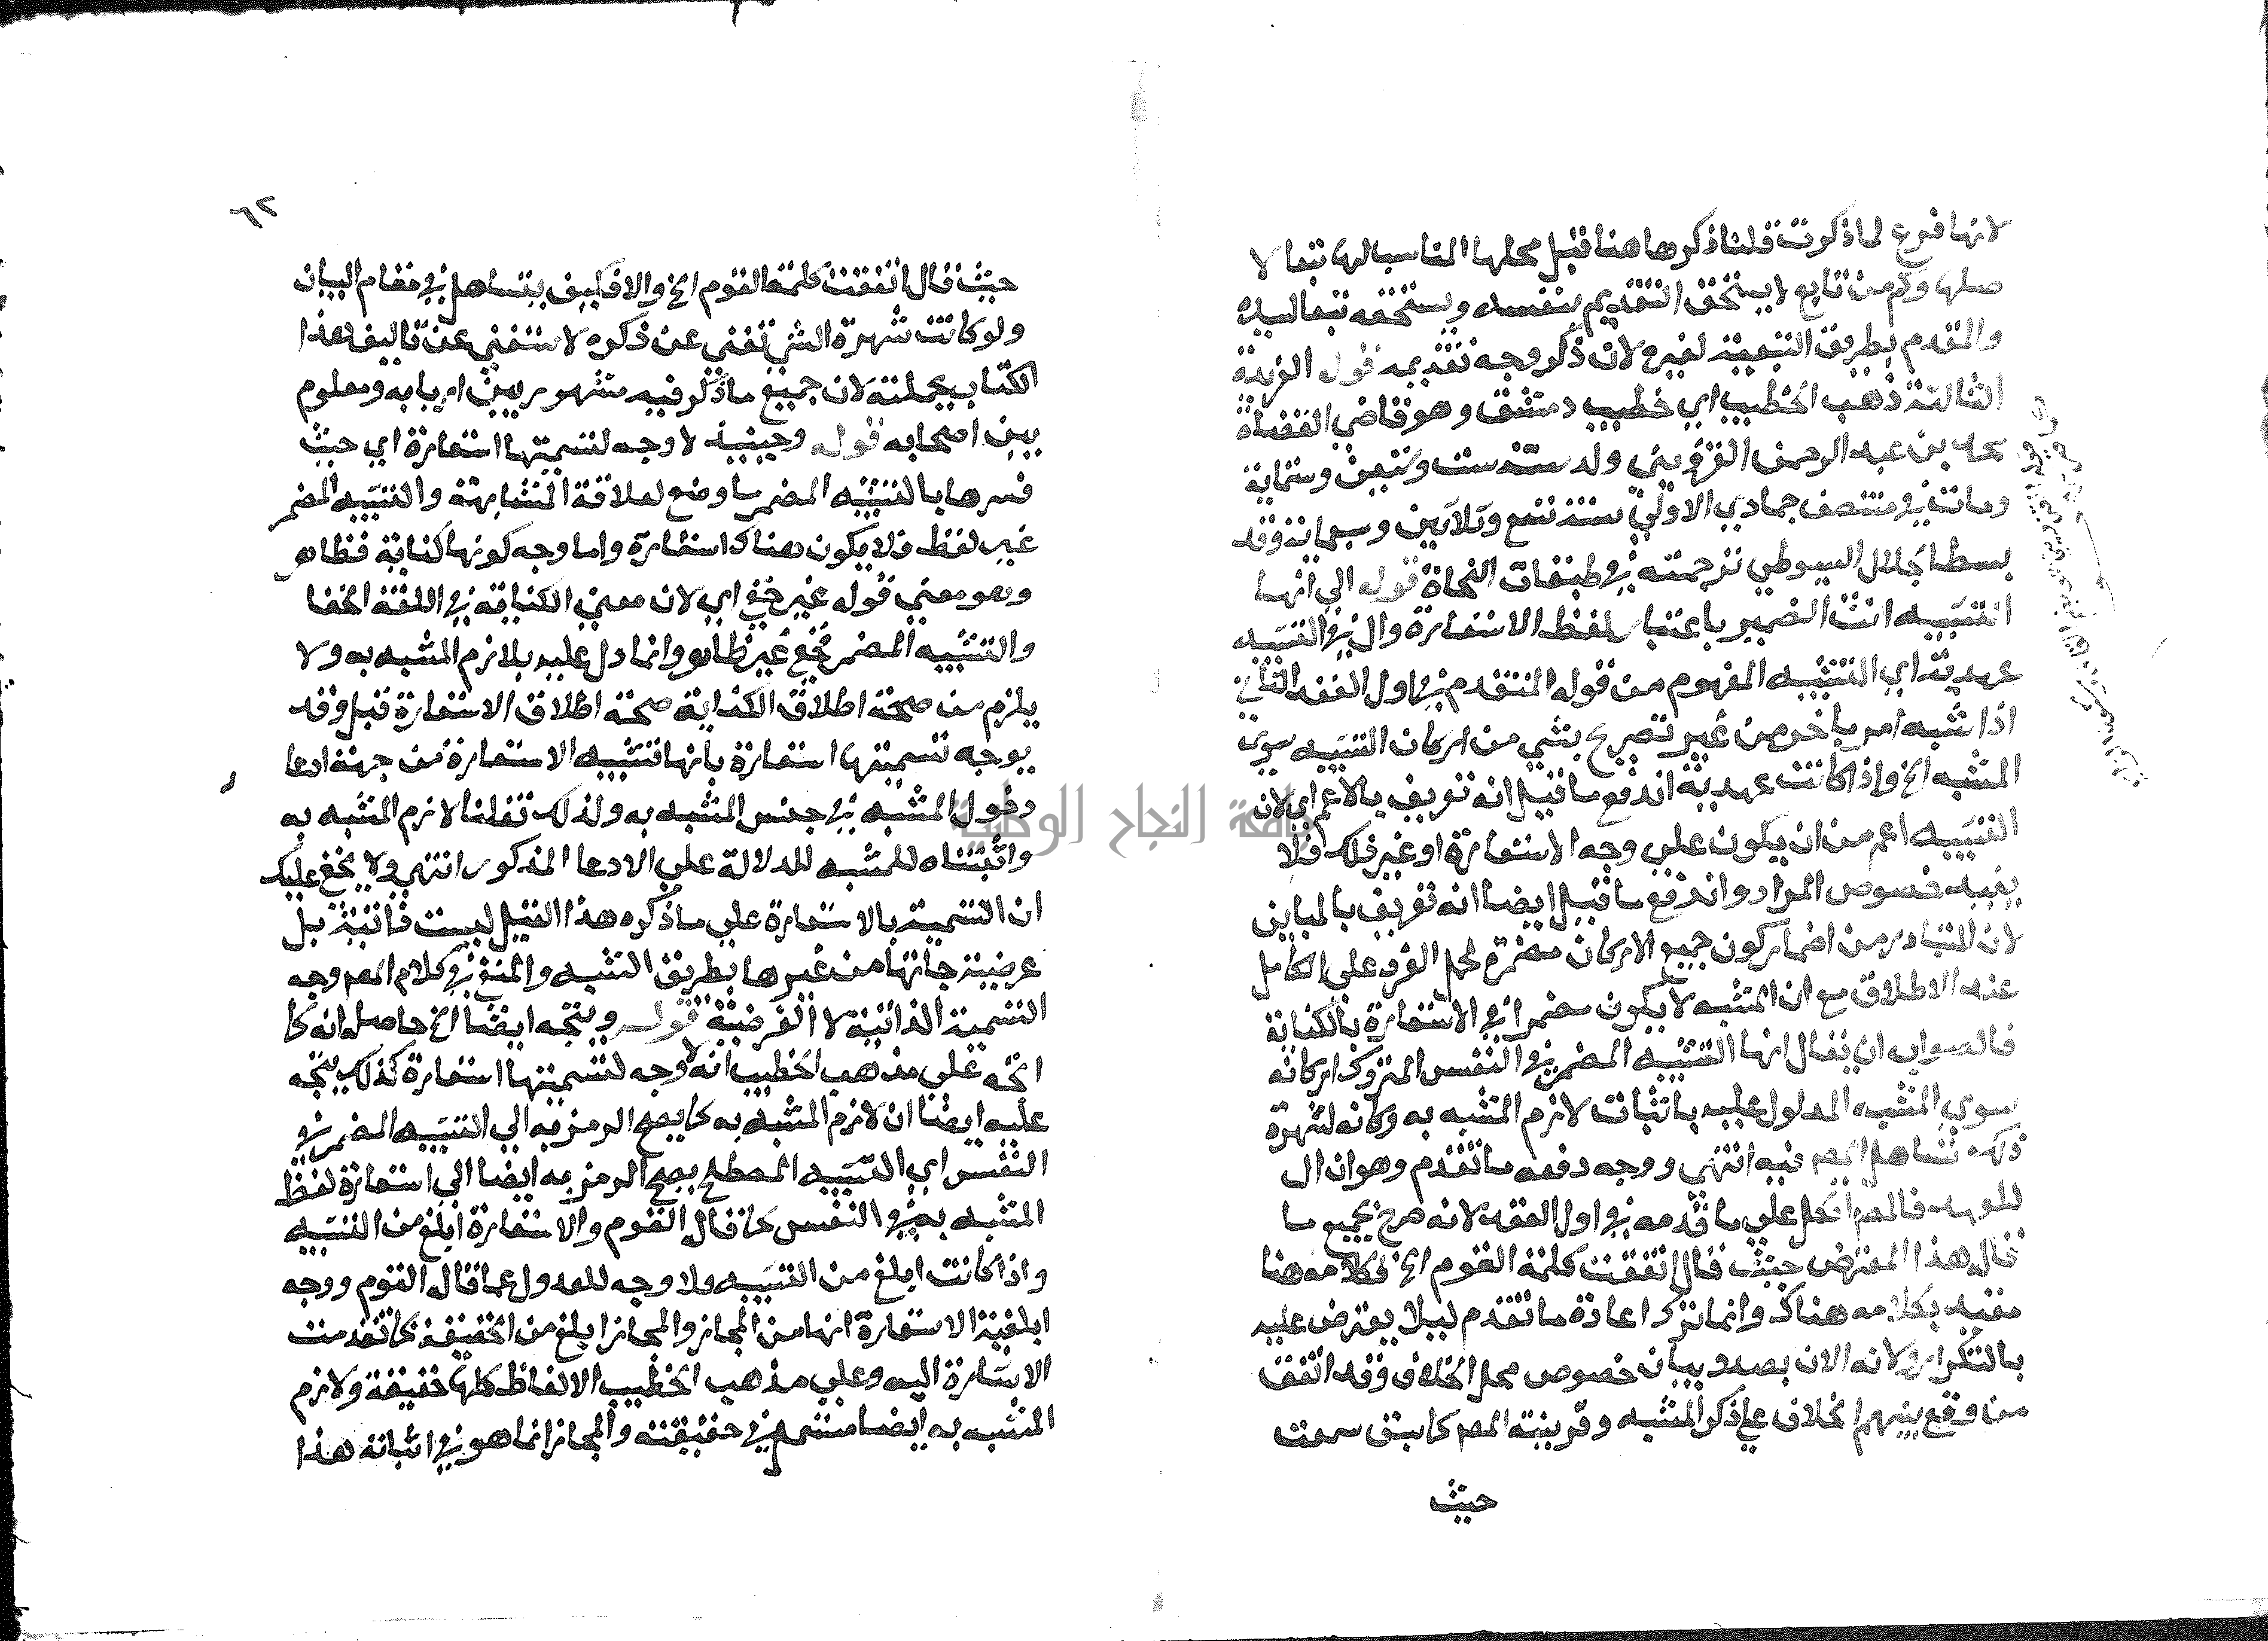 لانها فرع لما ذكرت قلنا ذكرها هنا قبل محلها المناسب لها تبعا لا
صلها وكم من تابع لا يستحق التقديم بنفسه ويستحقه تبعا لسيده
والمقدم بطريق التبعية لغيره لان ذكر وجه تقديمه قوله الفريدة
الثالثة ذهب الخطيب اي خطيب دمشق وهو قاضي القضاة
محمد بن عبد الرحمن القزويني ولد سنة ست وستين وستماية
ومات في منتصف جمادي الاولي سنة تسع وثلاثين وسبعماية وقد
بسط الجلال السيوطي ترجمته في طبقات النحاة قوله الي انها
التشبيه انث الضمير باعتبار لفظ الاستعارة وال في التشبيه
عهدية اي التشبيه المفهوم من قوله المتقدم في اول العقد الثاني
اذا شبه امر باخر من غير تصريح بشي من اركان التشبيه سوي
المشبه الخ واذا كانت عهدية اندفع ما قيل انه تعريف بالاعم اي لان
التشبيه اعم من ان يكون علي وجه الاستعارة او غير ذلك فلا
يفيد خصوص المراد واندفع ما قيل ايضا انه تعريف بالمباين
لان المتبادر من اضمار كون جميع الاركان مضمرة لحمل الفرد على الكامل
عند الاطلاق مع ان المشبه لا يكون مضمرا في الاستعارة بالكناية
فالصواب ان يقال انها التشبيه المضمر في النفس المتروك اركانه
سوي المشبه المدلول عليه باثبات لازم المشبه به وكانه لشهرة
ذلك تساهل المص فيه انتهي ووجه دفعه ما تقدم وهو ان ال
للعهد فالمص احال علي ما قدمه في اول العقد لانه صرح بجميع ما
قال هذا المعترض حيث قال اتفقت كلمة القوم الخ فكلامه هنا
مقيد بكلامه هناك وانما ترك اعادة ما تقدم ليلا يعترض عليه
بالتكرار ولانه الان بصدد بيان خصوص محل الخلاف وقد اتفق
من وقع بينهم الخلاف علي ذكر المشبه وقرينة المص كما سبق سمعت
حيث
٦٢
حيث قال اتفقت كلمة القوم الخ والا فكيف يتساهل في مقام البيان
ولو كانت شهرة الشي تغني عن ذكره لاستغني عن تاليف هذا
الكتاب بجملته لان جميع ما ذكر فيه مشهور بين اربابه ومعلوم
بين اصحابه قوله وحينيذ لا وجه لتسميتها استعارة اي حيث
فسرها بالتشبيه المضمر ما وضع لعلاقة المشابهة والتشبيه المضمر
غير لفظ فلا يكون هناك استعارة واما وجه كونها كناية فظاهر
وهو معني قوله غير خفي اي لان معني الكناية في اللغة الخفا
والتشبيه المضمر مخفي غير ظاهر وانما دل عليه بلازم المشبه به ولا
يلزم من صحة اطلاق الكناية صحة اطلاق الاستعارة قيل وقد
يوجه تسميتها استعارة بانها تشبيه الاستعارة من جهة ادعا
دخول المشبه في جنس المشبه به ولذلك نقلنا لازم المشبه به
واثبتناه للمشبه للدلالة علي الادعا المذكور انتهي ولا يخفي عليك
ان التسمية بالاستعارة علي ما ذكره هذا القيل ليست ذاتية بل
عرضية جاتها من غيرها بطريق التشبيه والمنفي في كلام المص وجه
التسمية الذاتية لا العرضية قوله ويتجه ايضا الخ حاصله انه كما
اتجه علي مذهب الخطيب انه لا وجه لتسميتها استعارة كذلك يتجه
عليه ايضا ان لازم المشبه به كما يصح الرمز به الي التشبيه المضمر في
النفس اي التشبيه المصطلح يصح الرمز به ايضا الي استعارة لفظ
المشبه به في النفس كما قال القوم والاستعارة ابلغ من التشبيه
واذا كانت ابلغ من التشبيه ولا وجه للعدول عما قال القوم ووجه
ابلغية الاستعارة انها من المجاز والمجاز ابلغ من الحقيقة كما تقدمت
الاشارة اليه وعلي مذهب الخطيب الالفاظ كلها حقيقة ولازم
المشبه به ايضا مستعمل في حقيقته والمجاز انما هو في اثباته هذا
جامعة النجاح الوطنية